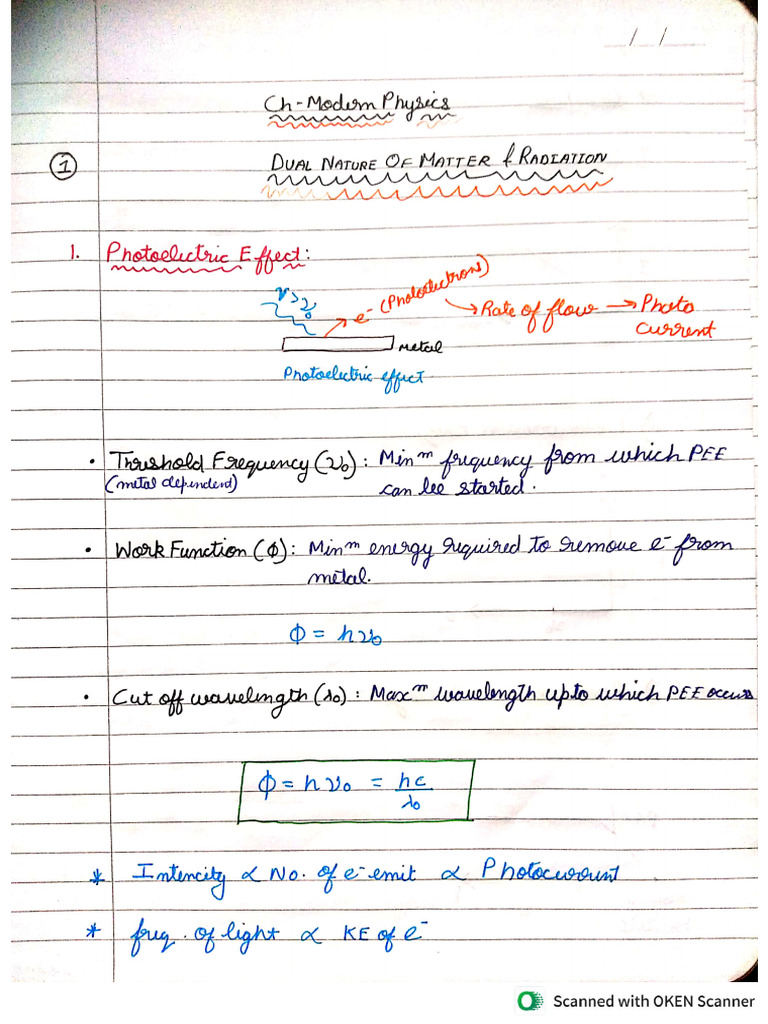 _/_/_
Ch-Modern Physics
① DUAL NATURE OF MATTER & RADIATION
1. Photoelectric Effect:
ν>ν₀ e⁻ (Photoelectrons) → Rate of flow → Photo current
metal
Photoelectric effect
• Threshold Frequency (ν₀): Minᵐ frequency from which PEE
(metal dependend) can be started.
• Work Function (ϕ): Minᵐ energy required to remove e⁻ from
metal.
ϕ = hν₀
• Cut off wavelength (λ₀): Maxᵐ wavelength upto which PEE occurs
ϕ = hν₀ = hc/λ₀
* Intencity ∝ No. of e⁻ emit ∝ Photocurrunt
* freq. of light ∝ KE of e⁻
Scanned with OKEN Scanner